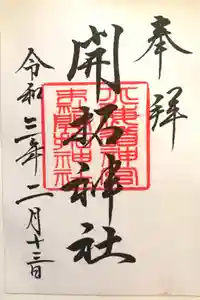 奉拝
開拓神社
令和三年二月十三日